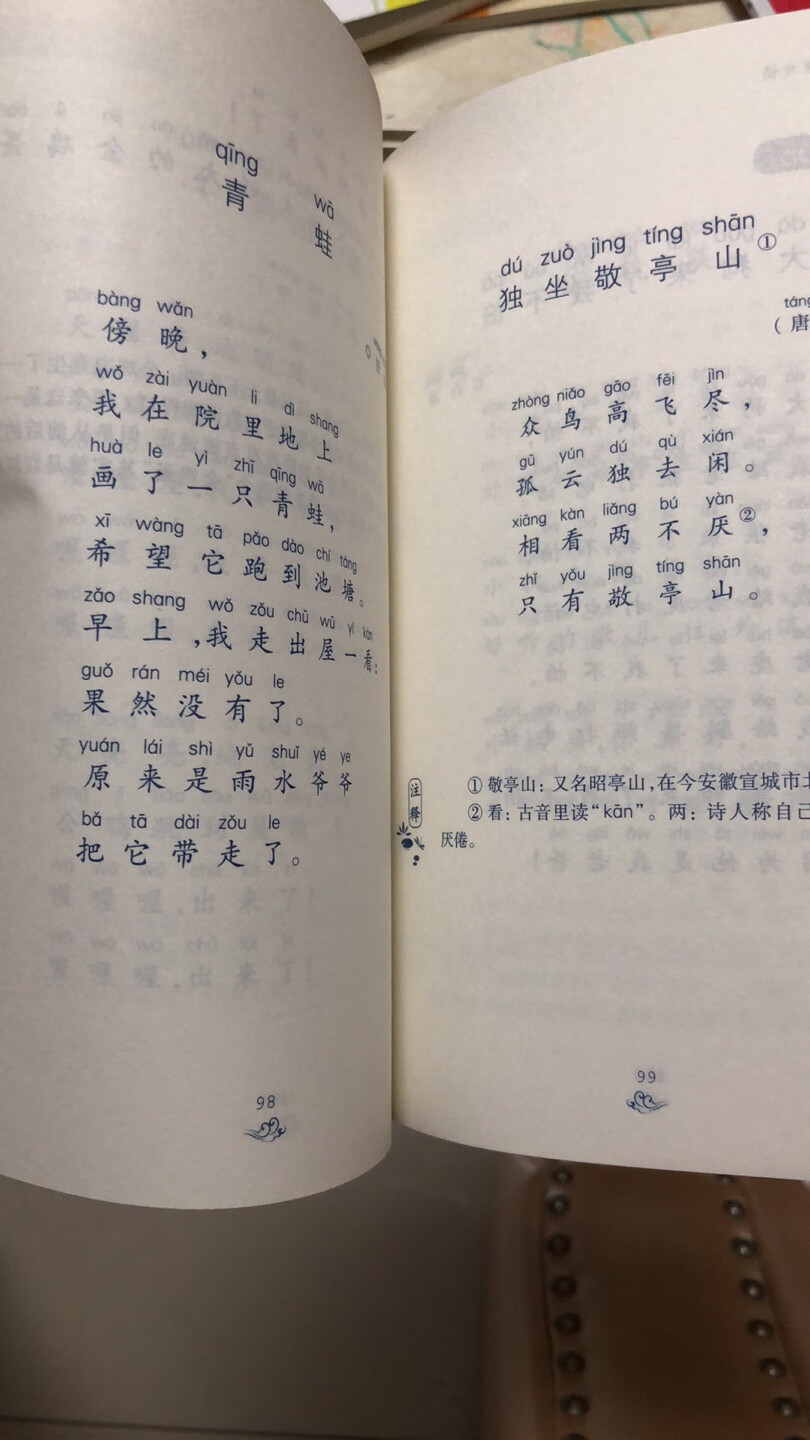 qīng wā
青 蛙
bàng wǎn
傍 晚，
wǒ zài yuàn li dì shang
我 在 院 里 地 上
huà le yì zhī qīng wā
画 了 一 只 青 蛙，
xī wàng tā pǎo dào chí táng
希 望 它 跑 到 池 塘。
zǎo shang wǒ zǒu chū wū yí kàn
早 上，我 走 出 屋 一 看：
guǒ rán méi yǒu le
果 然 没 有 了。
yuán lái shì yǔ shuǐ yé ye
原 来 是 雨 水 爷 爷
bǎ tā dài zǒu le
把 它 带 走 了。
98
dú zuò jìng tíng shān
独 坐 敬 亭 山①
táng
（唐
zhòng niǎo gāo fēi jìn
众 鸟 高 飞 尽，
gū yún dú qù xián
孤 云 独 去 闲。
xiāng kàn liǎng bú yàn
相 看 两 不 厌②，
zhǐ yǒu jìng tíng shān
只 有 敬 亭 山。
注释
①敬亭山：又名昭亭山，在今安徽宣城市北
②看：古音里读“kān”。两：诗人称自己
厌倦。
99